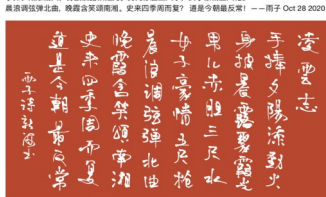 晨浪调弦弹北曲，晚霞含笑颂南湘。史来四季周而复？ 道是今朝最反常！ ——雨子 Oct 28 2020
凌雲志
手捧夕陽添火
身披晨露霞光
男儿赤胆三尺水
女子豪情五尺枪
晨浪调弦弹北曲
晚霞含笑颂南湘
史來四季周而复
道是今朝最反常
雨子诗